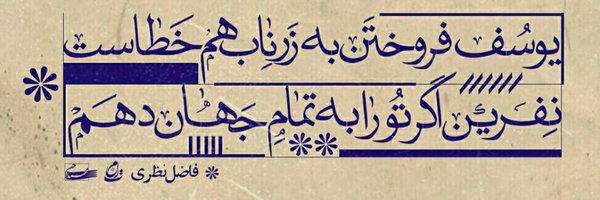 یوسُف فروختَن به زَرِ ناب هم خَطاست
نِفرین اگر تُو را به تمامِ جَهان دهَم
* فاضل نظری